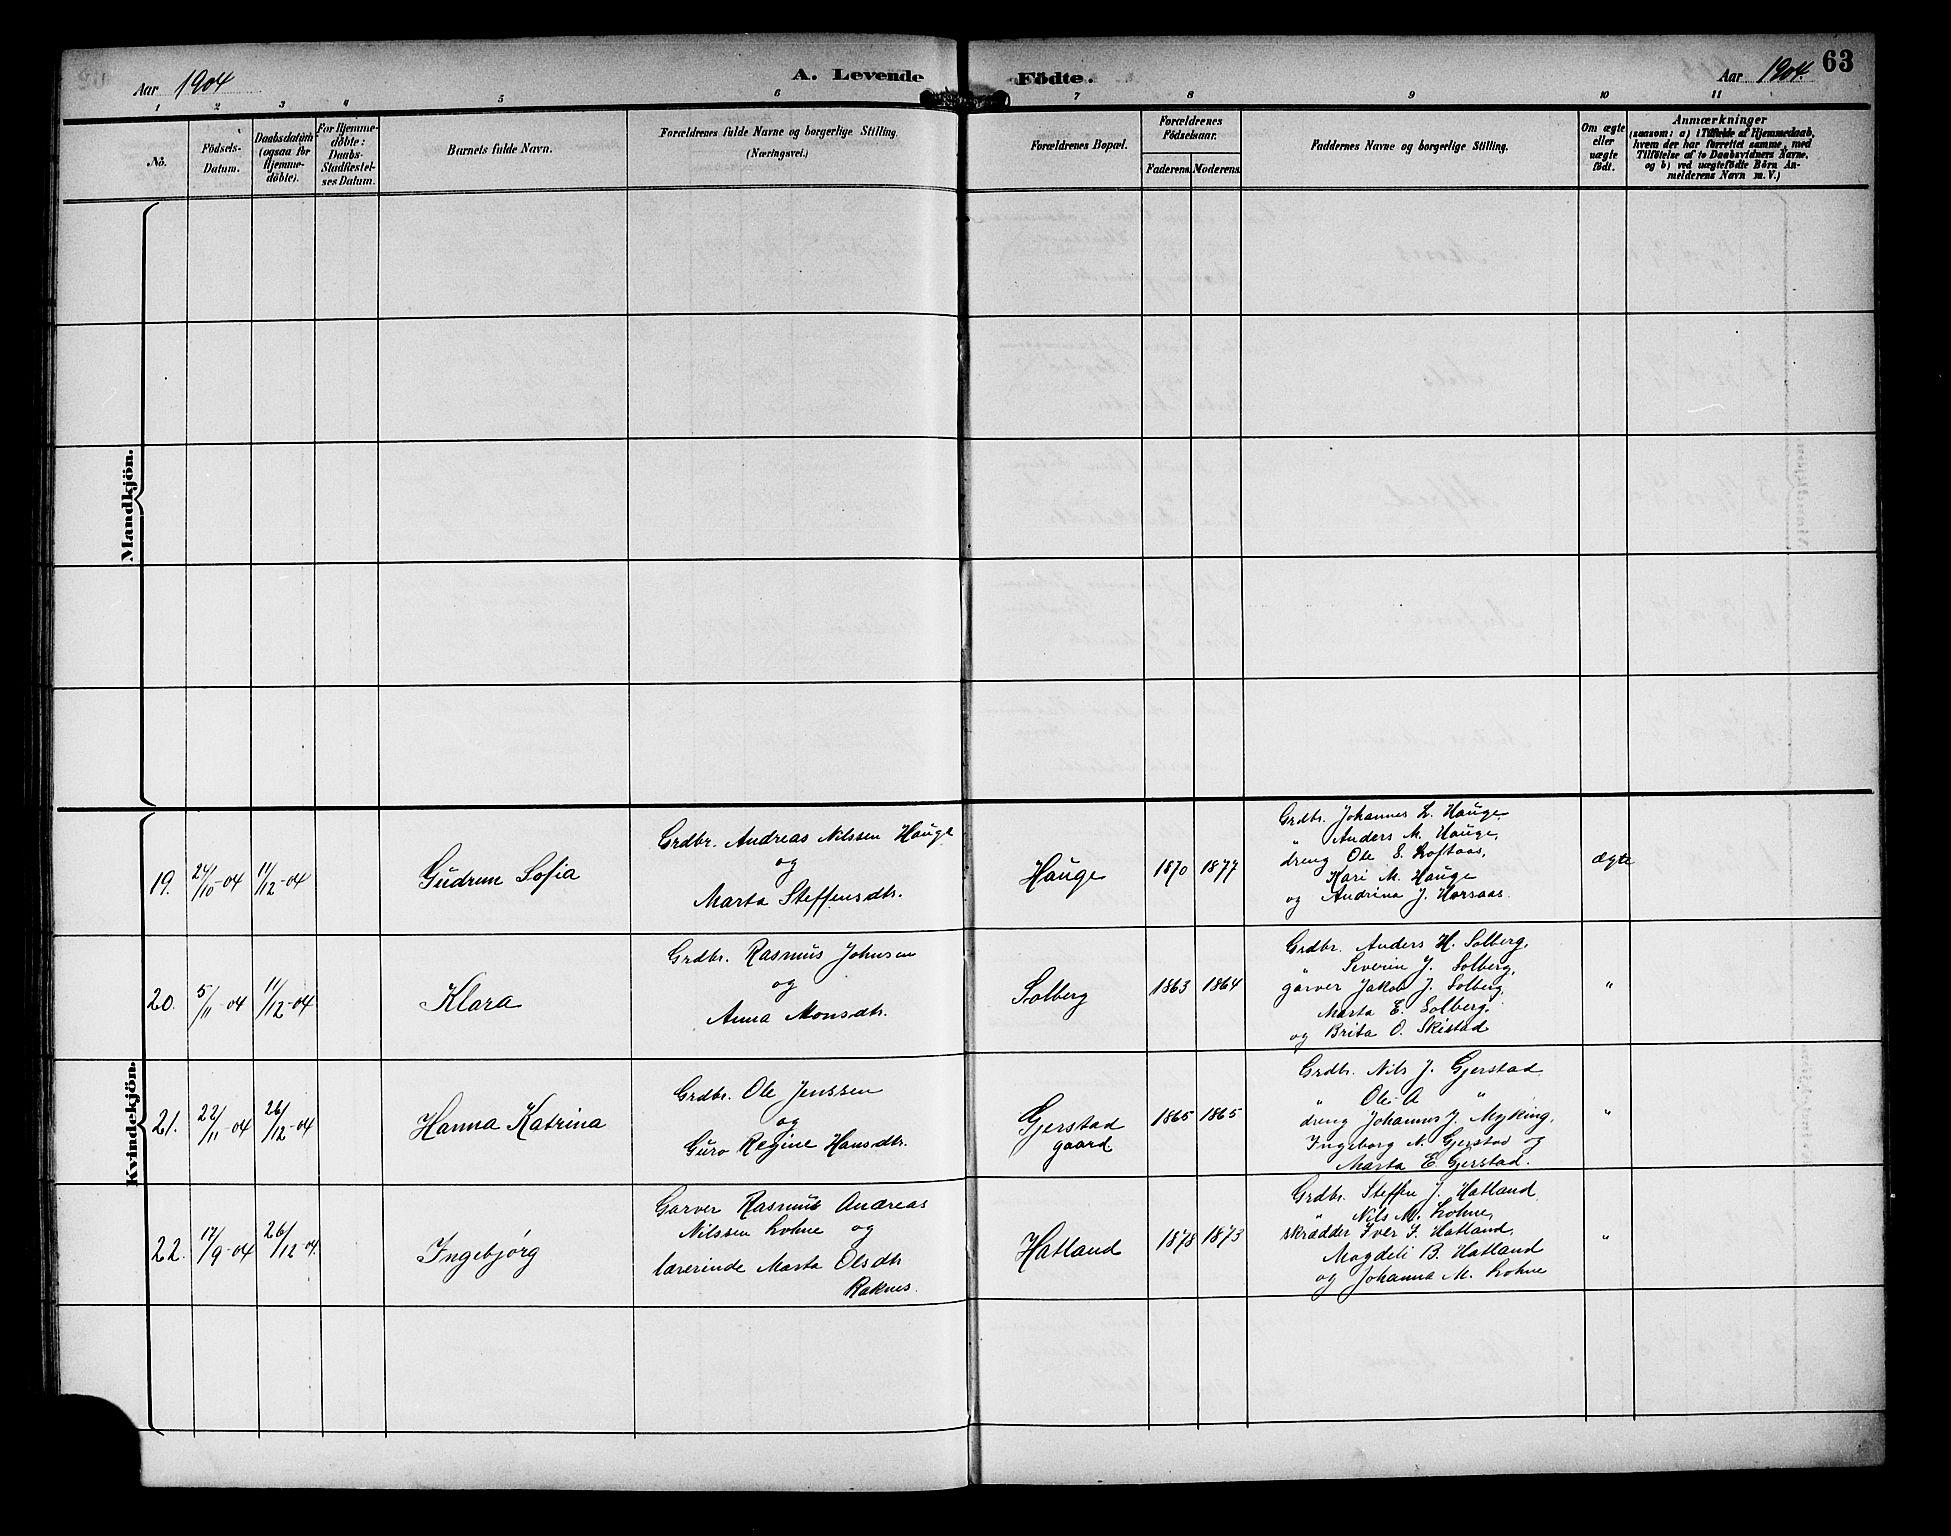 63
Aar 1904
A. Levende Födte.
Aar 1904.
1 2 3 4 5 6 7 8 9 10 11
No.
Födsels-
Datum.
Daabsdatum
(ogsaa for
Hjemme-
döbte).
For Hjemme-
döbte:
Daabs-
Stadfæstel-
ses Datum.
Barnets fulde Navn.
Forældrenes fulde Navne og borgerlige Stilling.
(Næringsvei.)
Forældrenes Bopæl.
Forældrenes
Födselsaar.
Faderens. Moderens.
Faddernes Navne og borgerlige Stilling.
Om ægte
eller
uægte
födt.
Anmærkninger
(saasom: a) i Tilfælde af Hjemmedaab,
hvem der har forrettet samme, med
Tilföielse af to Daabsvidners Navne,
og b) ved uægtefödte Börn An-
melderens Navn m. V.)
Mandkjön.
Kvindekjön.
19.
24/10-04
11/12-04
Gudrun Sofia
Grdbr. Andreas Nilssen Hauge
og
Marta Steffensdtr.
Hauge
1870
1877
Grdbr. Johannes L. Hauge,
" Anders M. Hauge,
dreng Ole E. Loftaas,
Kari M. Hauge
og Andrina J. Horsaas.
ægte
20.
5/11-04
11/12-04
Klara
Grdbr. Rasmus Johnsen
og
Anna Monsdtr.
Solberg
1863
1864
Grdbr. Anders H. Solberg,
" Severin J. Solberg,
garver Jakob J. Solberg,
Marta E. Solberg,
og Brita O. Skistad
"
21.
22/11-04
26/12-04
Hanna Katrina
Grdbr. Ole Jenssen
og
Guro Regine Hansdtr.
Gjerstad
gaard
1865
1865
Grdbr. Nils J. Gjerstad
" Ole A "
dreng Johannes J. Myking,
Ingeborg N. Gjerstad og
Marta E. Gjerstad.
"
22.
17/9-04
26/12-04.
Ingebjørg
Garver Rasmus Andreas
Nilssen Lohne og
lærerinde Marta Olsdtr
Raknes.
Hatland
1878
1873
Grdbr. Steffen J. Hatland
" Nils M. Lohne,
skrædder Iver I. Hatland,
Magdeli B. Hatland
og Johanna M. Lohne
"